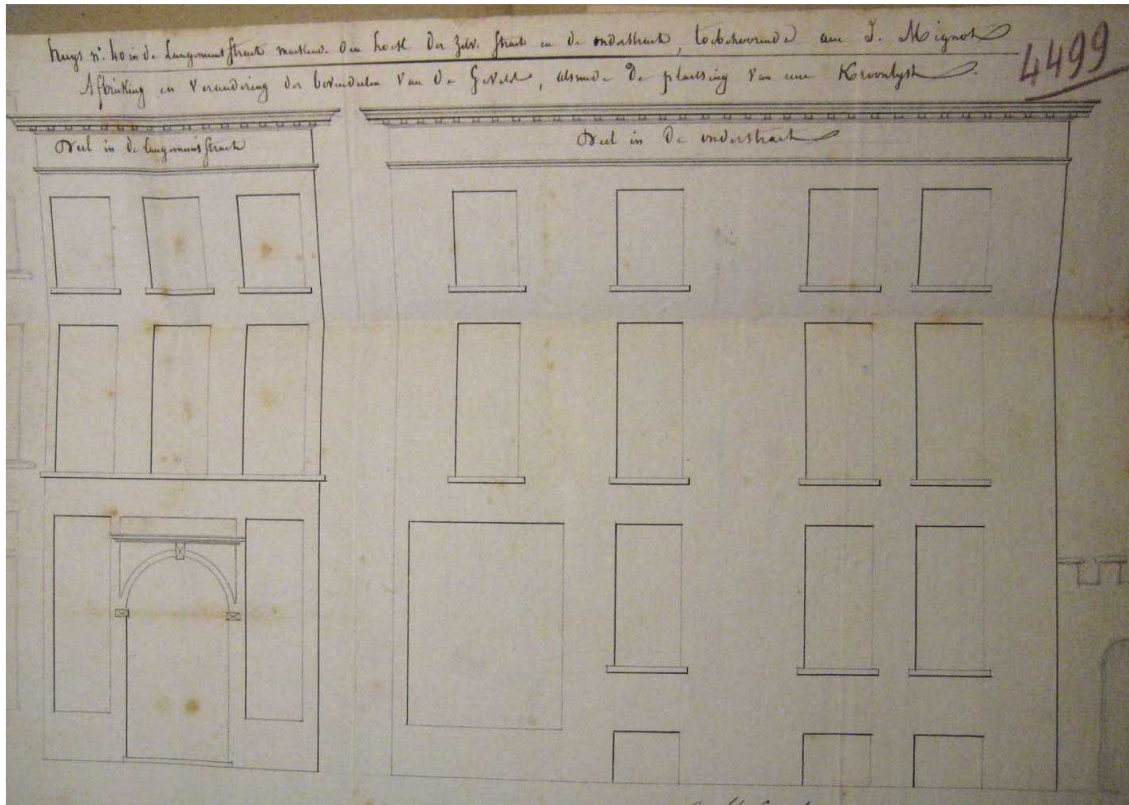 huys n.º 40 in de Langemunt straat makende den hoek der zelve straet en de onderstraet, toebehoorende aen J. Mignot
Afbreking en Verandering der bovendeelen van de Gevels, alsmede de plaetsing van eene Kroonlyst.
4499
Deel in de langemunt straet
Deel in de onderstraet